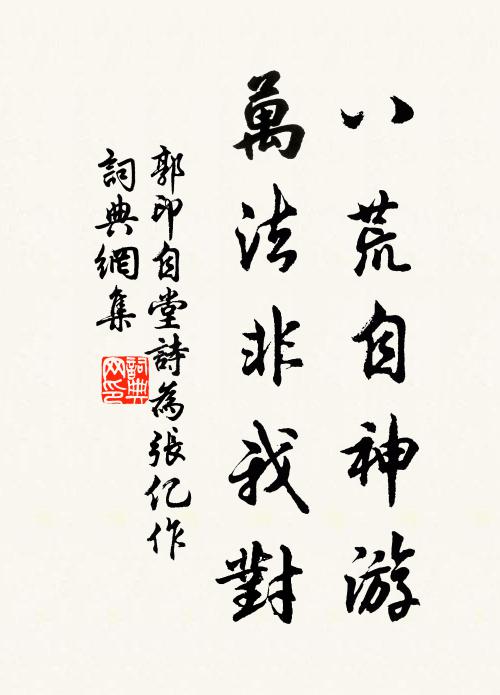 八荒自神游
萬法非我對
郭印自堂詩為張仡作
詞典網集
詞典
网印